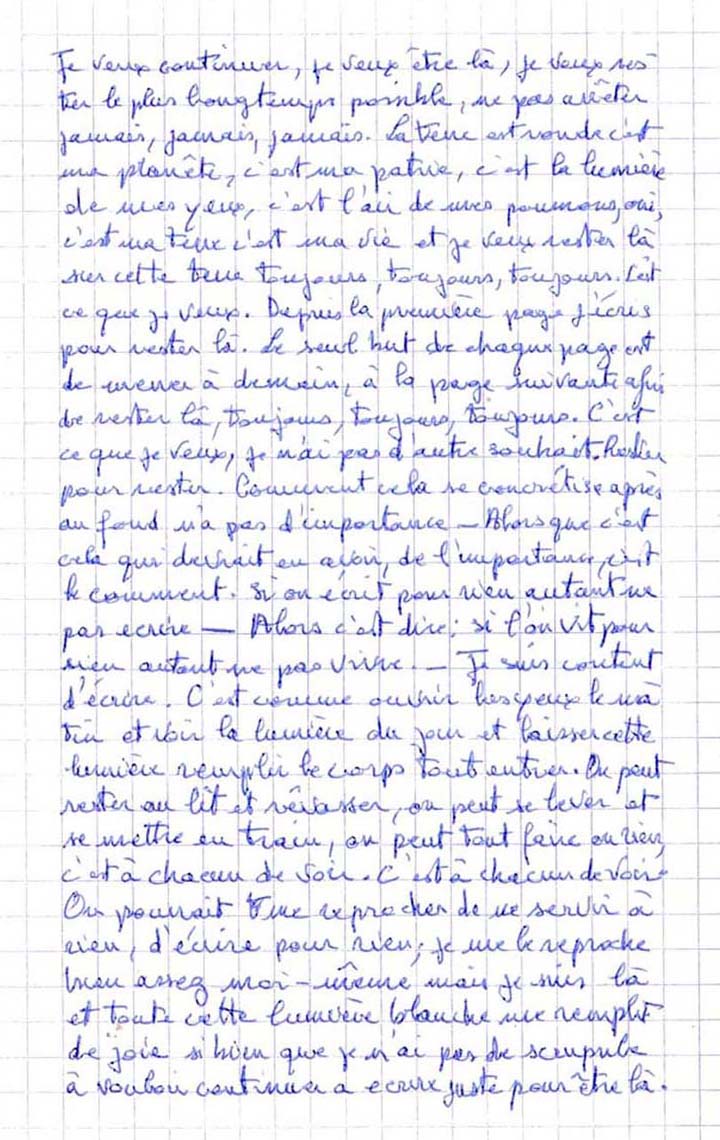 Je veux continuer, je veux être là, je veux res
ter le plus longtemps possible, ne pas arrêter
jamais, jamais, jamais. La terre est ronde c'est
ma planète, c'est ma patrie, c'est la lumière
de mes yeux, c'est l'air de mes poumons, oui,
c'est ma terre c'est ma vie et je veux rester là
sur cette terre toujours, toujours, toujours. C'est
ce que je veux. Depuis la première page j'écris
pour rester là. Le seul but de chaque page est
de mener à demain, à la page suivante afin
de rester là, toujours, toujours, toujours. C'est
ce que je veux, je n'ai pas d'autre souhait. Rester
pour rester. Comment cela se concrétise après
au fond n'a pas d'importance — Alors que c'est
cela qui devrait en avoir, de l'importance, c'est
le comment. Si on écrit pour rien autant ne
pas ecrire — Alors c'est dire : si l'on vit pour
rien autant ne pas vivre. — Je suis content
d'écrire. C'est comme ouvrir les yeux le ma
tin et voir la lumière du jour et laisser cette
lumière remplir le corps tout entier. On peut
rester au lit et rêvasser, on peut se lever et
se mettre en train, on peut tout faire ou rien,
c'est à chacun de voir. C'est à chacun de voir.
On pourrait me reprocher de ne servir à
rien, d'écrire pour rien; je me le reproche
bien assez moi-même mais je suis là
et toute cette lumière blanche me remplit
de joie si bien que je n'ai pas de scrupule
à vouloir continuer a ecrire juste pour être là.